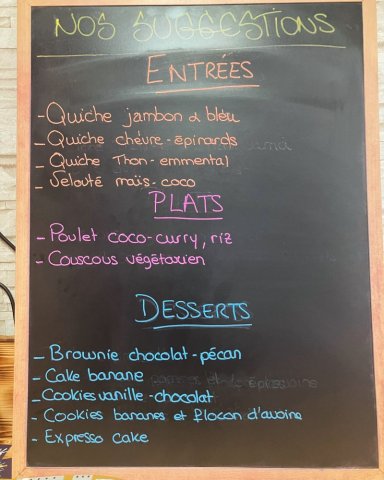 NOS SUGGESTIONS
ENTRÉES
- Quiche jambon & bleu
- Quiche chèvre - épinards
- Quiche Thon - emmental
- Velouté maïs - coco
PLATS
- Poulet coco-curry, riz
- Couscous végétarien
DESSERTS
- Brownie chocolat - pécan
- Cake banane
- Cookies vanille - chocolat
- Cookies bananes et flocon d'avoine
- Expresso cake